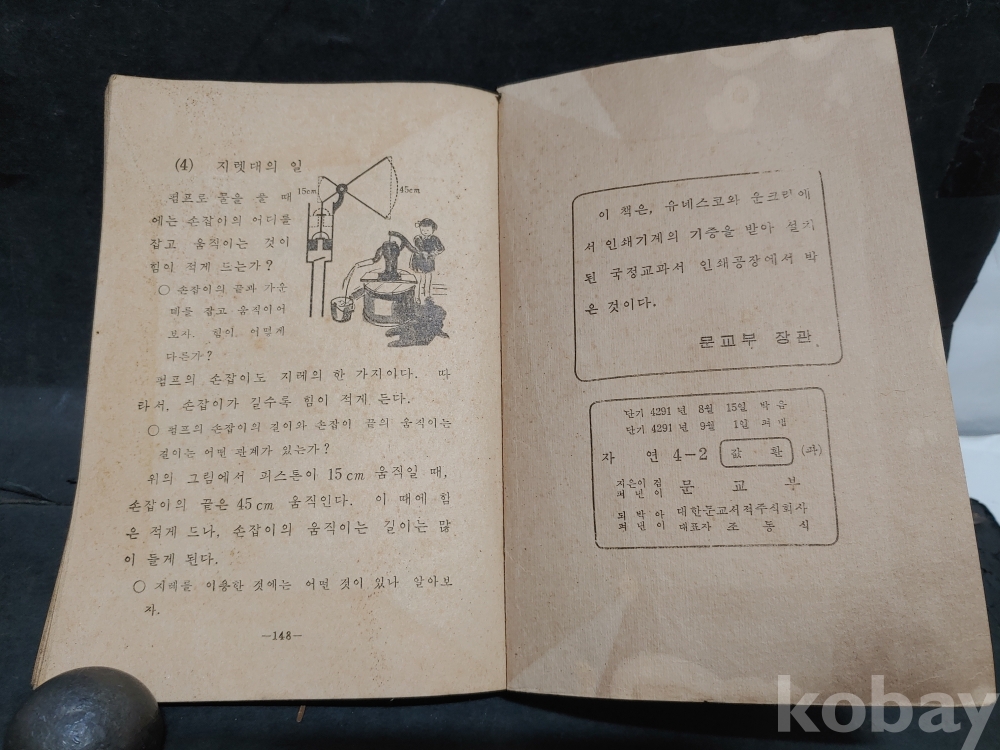 (4) 지렛대의 일
펌프로 물을 풀 때
에는 손잡이의 어디를
잡고 움직이는 것이
힘이 적게 드는가?
○ 손잡이의 끝과 가운
데를 잡고 움직이어
보자. 힘이 어떻게
다른가?
15cm
45cm
펌프의 손잡이도 지레의 한 가지이다. 따
라서, 손잡이가 길수록 힘이 적게 든다.
○ 펌프의 손잡이의 길이와 손잡이 끝의 움직이는
길이는 어떤 관계가 있는가?
위의 그림에서 피스톤이 15cm 움직일 때,
손잡이의 끝은 45cm 움직인다. 이 때에 힘
은 적게 드나, 손잡이의 움직이는 길이는 많
이 들게 된다.
○ 지레를 이용한 것에는 어떤 것이 있나 알아보
자.
—148—
이 책은, 유네스코와 운크라에
서 인쇄기계의 기증을 받아 설치
된 국정교과서 인쇄공장에서 박
은 것이다.
문교부 장관
단기 4291년 8월 15일 박음
단기 4291년 9월 1일 펴냄
자연 4-2 값 환
지은이 겸
펴낸이 문교부
되박아
펴낸이 대한문교서적주식회사
대표자 조 동 식
kobay